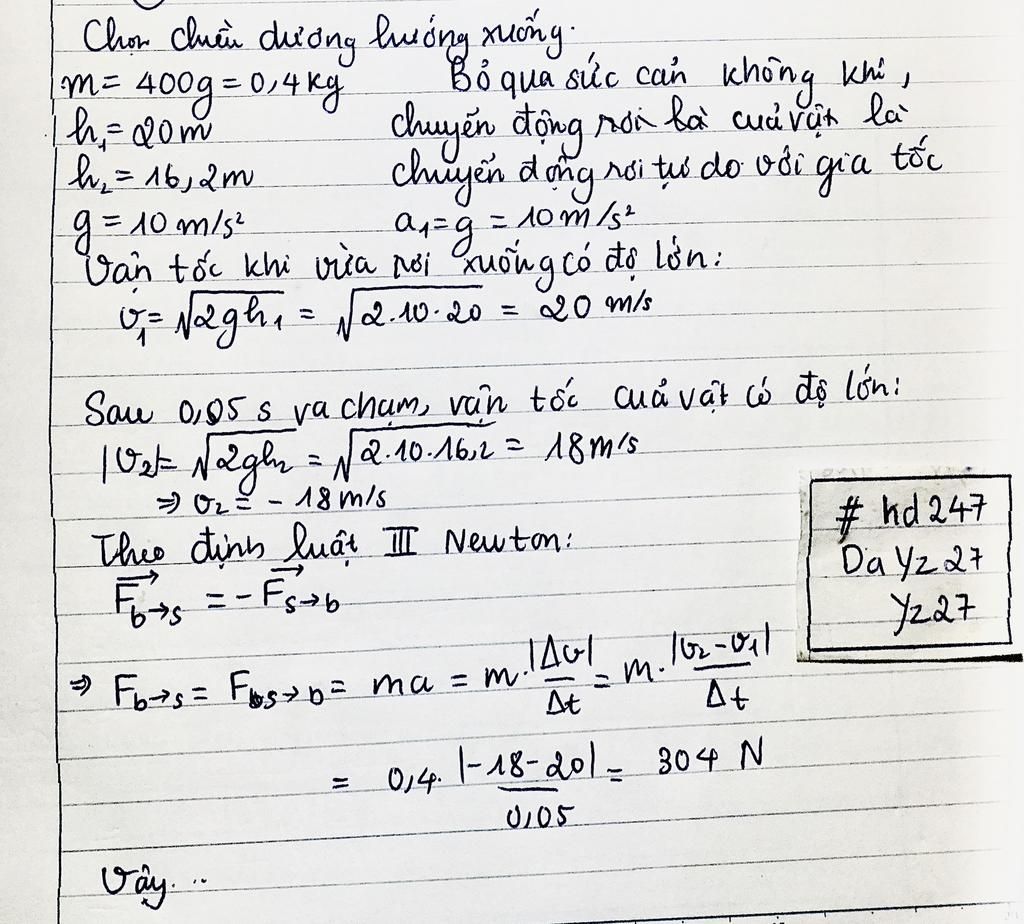 Chọn chiều dương hướng xuống.
m = 400g = 0,4 kg Bỏ qua sức cản không khí,
h₁ = 20m chuyển động rơi là của vật là
h₂ = 16,2m chuyển động rơi tự do với gia tốc
g = 10 m/s² a₁ = g = 10 m/s²
Vận tốc khi vừa rơi xuống có độ lớn:
v₁ = √2gh₁ = √2.10.20 = 20 m/s
Sau 0,05 s va chạm, vận tốc của vật có độ lớn:
|v₂| = √2gh₂ = √2.10.16,2 = 18 m/s
⇒ v₂ = - 18 m/s
Theo định luật III Newton:
F⃗b→s = - F⃗s→b
⇒ Fb→s = Fs→b = ma = m.|Δv|/Δt = m.|v₂-v₁|/Δt
= 0,4. |-18-20|/0,05 = 304 N
Vậy...
# kd247
Da Yz27
Yz27